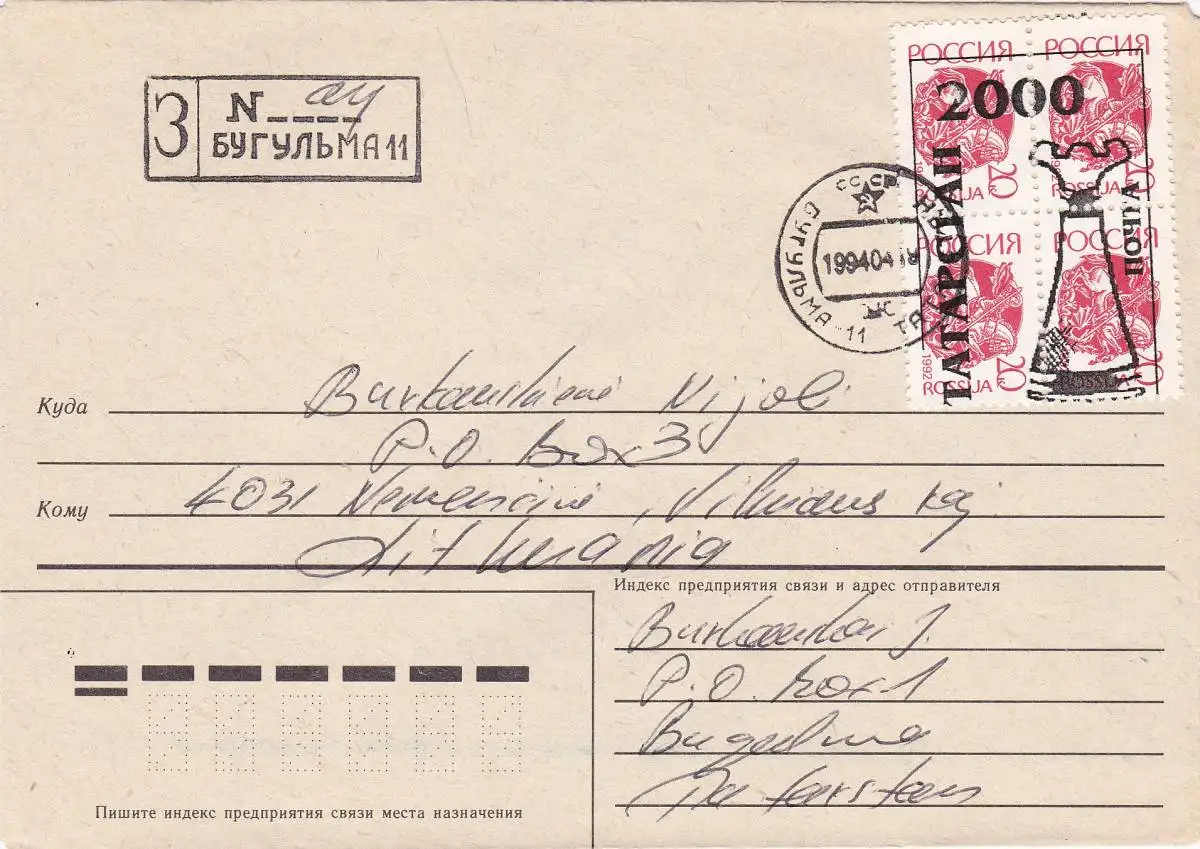 З
N 04
БУГУЛЬМА 11
РОССИЯ
РОССИЯ
2000
ТАТАРСТАН
ПОЧТА
20к
1992 ROSSIJA
20к
ROSSIJA
РОССИЯ
РОССИЯ
20к
1992 ROSSIJA
20к
ROSSIJA
СССР
БУГУЛЬМА-11
19940418
Куда
Nijoli
P.O. box 3
Кому
4031 Nemencine, Vilniaus raj
Lithuania
Индекс предприятия связи и адрес отправителя
J.
P.O. box 1
Bugulma
Tatarstan
Пишите индекс предприятия связи места назначения